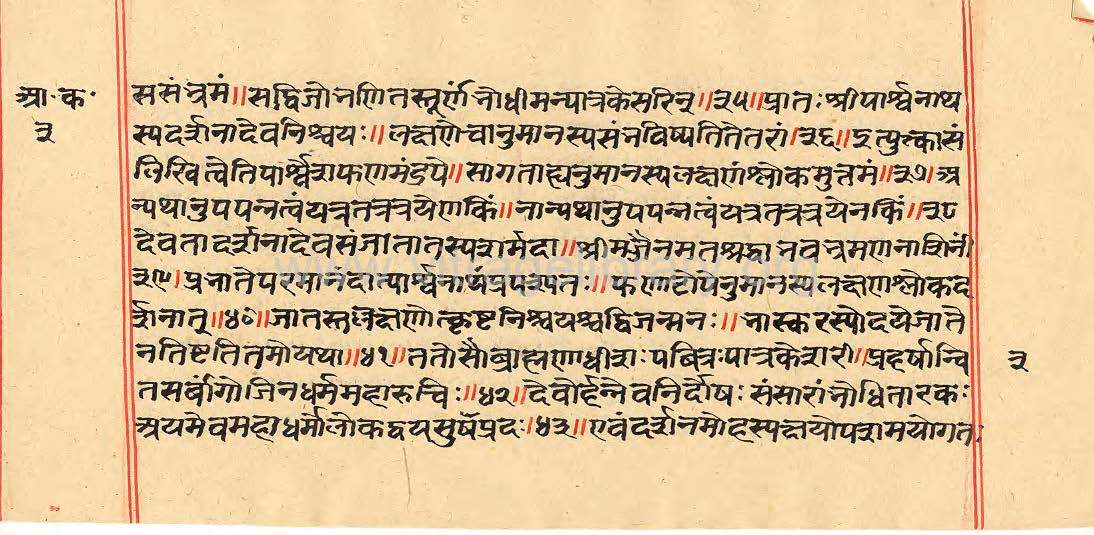 आ॰क॰
२
ससंभ्रमं॥सद्विजोभणितस्तूर्णंभोधीमन्पात्रकेसरिन्॥३५॥प्रातःश्रीपार्श्वनाथ
स्यदर्शनादेवनिश्चयः॥लक्षणेचानुमानस्यसंभविष्यतितेतरां।३६॥इत्युत्क्वासं
लिखित्वेतिपार्श्वेशफणमंडपे॥सागताह्यनुमानस्यलक्षणंश्लोकमुत्तमं॥३७।अ
न्यथानुपपन्नत्वंयत्रतत्रत्रयेणकिं॥नान्यथानुपपन्नत्वंयत्रतत्रत्रयेनकिं॥३८
देवतादर्शनादेवसंजातातस्यशर्मदा॥श्रीमज्जैनमतश्रद्धाभवभ्रमणनाशिनी
३९।प्रभातेपरमानंदात्पार्श्वनाथंप्रपश्यतः॥फणाटोपेनुमानस्यलक्षणश्लोकद
र्शनात्॥४०॥जातस्तल्लक्षणोत्कृष्टनिश्चयश्चद्विजन्मनः॥भास्करस्योदयेजाते
नतिष्टतितमोयथा॥४१॥ततोसौब्राह्मणाधीशःपवित्रःपात्रकेशरी॥प्रहर्षान्वि
२
तसर्बांगोजिनधर्ममहारुचिः॥४२॥देवोर्हन्नेवनिर्दोषःसंसारांभोधितारकः
अयमेवमहाधर्मोलोकद्वयसुषंप्रदः।४३॥एवंदर्शनमोहस्यक्षयोपशमयोगतः
www.vitragelibrary.org